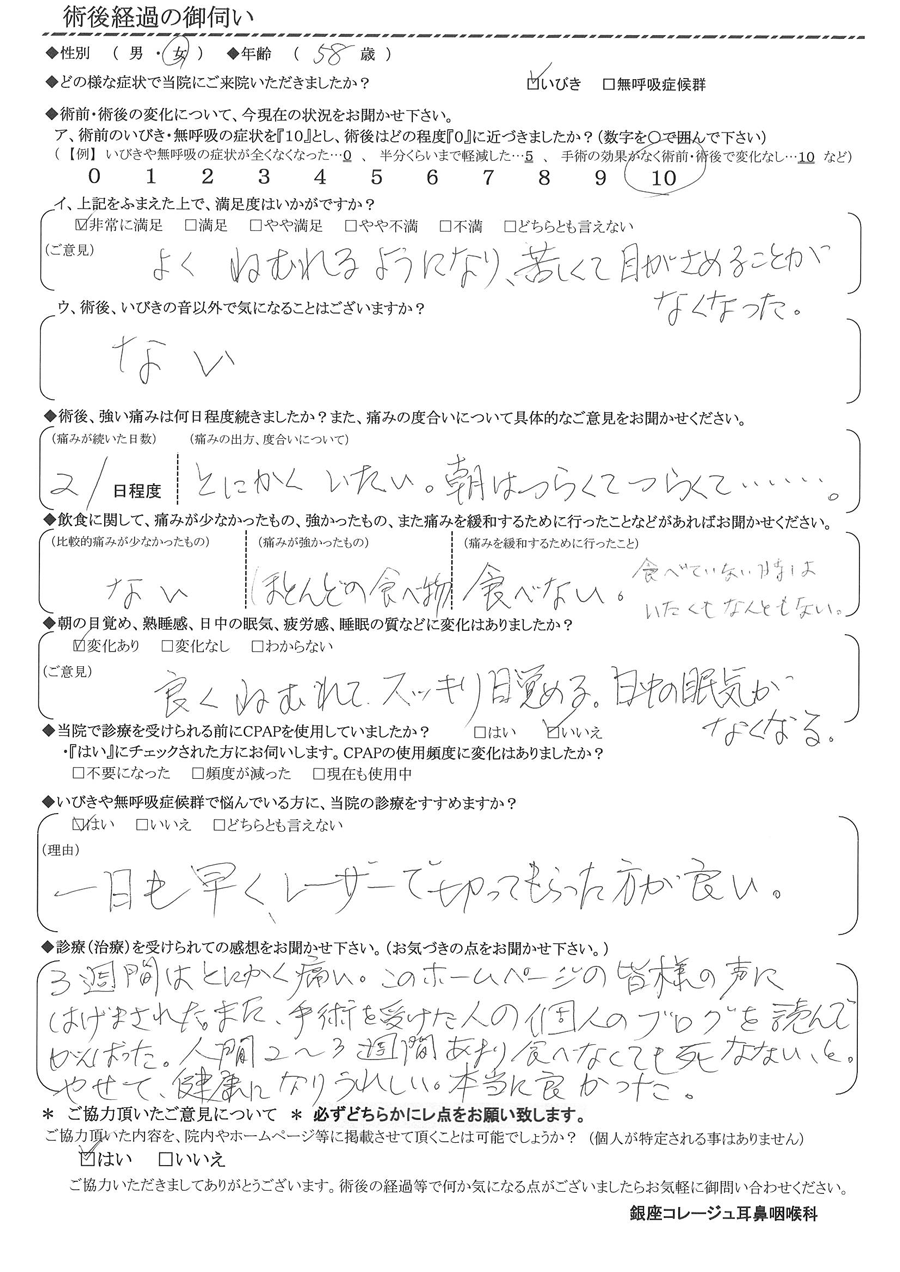 術後経過の御伺い
◆性別 ( 男 ・ 女 ) ◆年齢 ( 58 歳 )
◆どの様な症状で当院にご来院いただきましたか? ☑いびき □無呼吸症候群
◆術前・術後の変化について、今現在の状況をお聞かせ下さい。
ア、術前のいびき・無呼吸の症状を『10』とし、術後はどの程度『0』に近づきましたか?(数字を○で囲んで下さい)
(【例】いびきや無呼吸の症状が全くなくなった…0 、 半分くらいまで軽減した…5 、 手術の効果がなく術前・術後で変化なし…10 など)
0 1 2 3 4 5 6 7 8 9 10
イ、上記をふまえた上で、満足度はいかがですか?
☑非常に満足 □満足 □やや満足 □やや不満 □不満 □どちらとも言えない
(ご意見)
よく ねむれるようになり、苦しくて目がさめることが
なくなった。
ウ、術後、いびきの音以外で気になることはございますか?
ない
◆術後、強い痛みは何日程度続きましたか?また、痛みの度合いについて具体的なご意見をお聞かせください。
(痛みが続いた日数) (痛みの出方、度合いについて)
21 日程度 とにかく いたい。朝はつらくてつらくて……。
◆飲食に関して、痛みが少なかったもの、強かったもの、また痛みを緩和するために行ったことなどがあればお聞かせください。
(比較的痛みが少なかったもの) (痛みが強かったもの) (痛みを緩和するために行ったこと)
ない ほとんどの食べ物 食べない。 食べていない時は
いたくもなんともない。
◆朝の目覚め、熟睡感、日中の眠気、疲労感、睡眠の質などに変化はありましたか?
☑変化あり □変化なし □わからない
(ご意見)
良くねむれて、スッキリ目覚める。日中の眠気が
なくなる。
◆当院で診療を受けられる前にCPAPを使用していましたか? □はい ☑いいえ
・『はい』にチェックされた方にお伺いします。CPAPの使用頻度に変化はありましたか?
□不要になった □頻度が減った □現在も使用中
◆いびきや無呼吸症候群で悩んでいる方に、当院の診療をすすめますか?
☑はい □いいえ □どちらとも言えない
(理由)
一日も早く、レーザーで切ってもらった方が良い。
◆診療(治療)を受けられての感想をお聞かせ下さい。(お気づきの点をお聞かせ下さい。)
3週間はとにかく痛い。このホームページの皆様の声に
はげまされた。また、手術を受けた人の個人のブログを読んで
がんばった。人間2〜3週間あまり食べなくても死なないと。
やせて、健康になりうれしい。本当に良かった。
* ご協力頂いたご意見について * 必ずどちらかにレ点をお願い致します。
ご協力頂いた内容を、院内やホームページ等に掲載させて頂くことは可能でしょうか? (個人が特定される事はありません)
☑はい □いいえ
ご協力いただきましてありがとうございます。術後の経過等で何か気になる点がございましたらお気軽に御問い合わせください。
銀座コレージュ耳鼻咽喉科